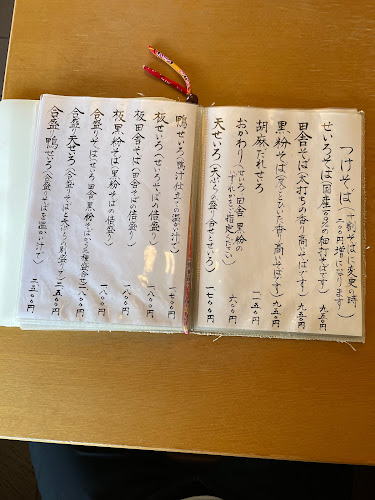 つけそば(十割そばに変更の時、二〇〇円増になります)
せいろそば(国産石臼の細打そばです) 九五〇円
田舎そば(太打ちの香り高いそばです) 九五〇円
黒粉そば(香り高いそばです) 九五〇円
胡麻だれせいろ 一一五〇円
おかわり(せいろ 田舎 黒粉の
いずれかをご指定ください) 六〇〇円
天せいろ(天ぷらの盛り合せとせいろ) 一七〇〇円
鴨せいろ(鴨汁仕立ての温かい汁で) 一七〇〇円
板せいろ(せいろそばの倍盛り) 一八〇〇円
板田舎そば(田舎そばの倍盛り) 一八〇〇円
板黒粉そば(黒粉そばの倍盛り) 一八〇〇円
合盛りそば(せいろ 田舎 黒粉そばから 種盛り) 一八〇〇円
合盛り天せいろ(合盛りそばと天ぷらの) 二五〇〇円
合盛り鴨せいろ(合盛りそばを温かい汁で) 二五〇〇円